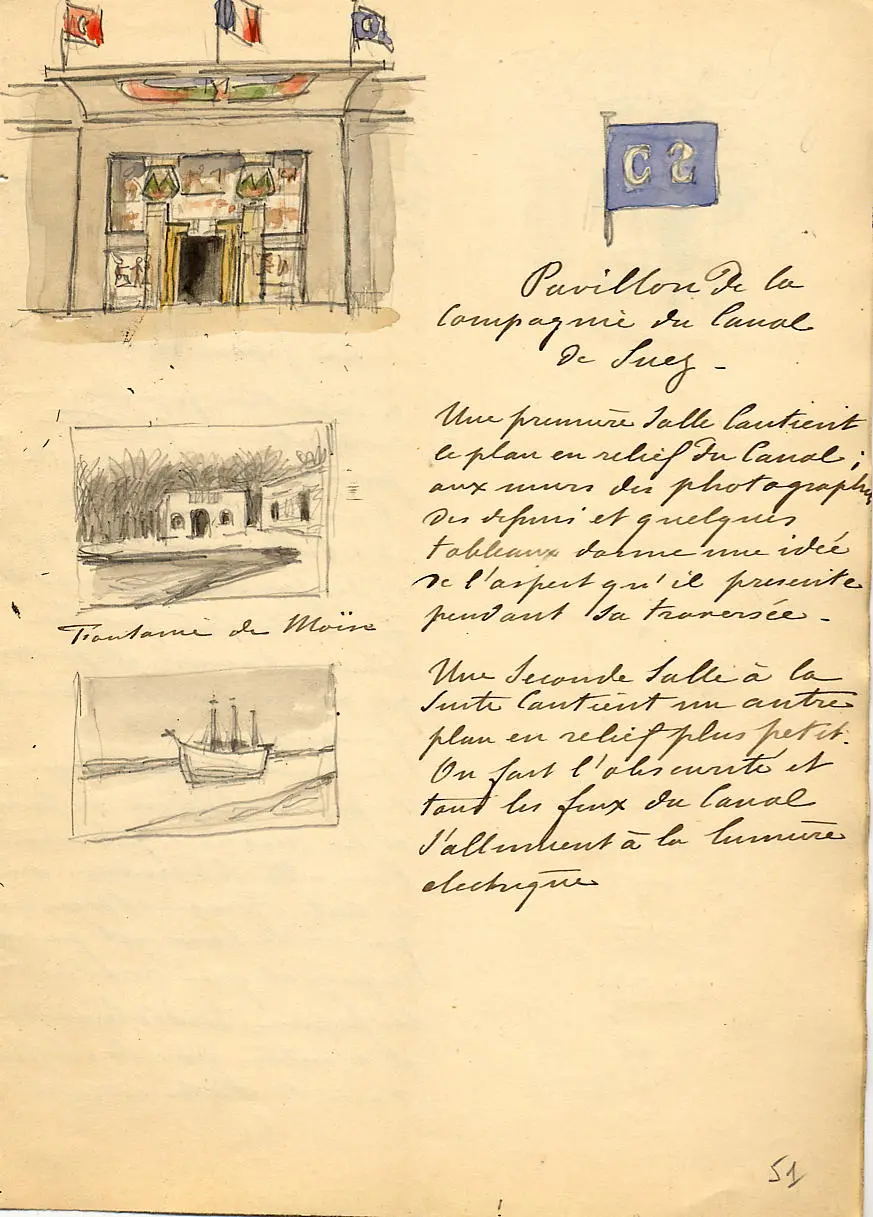 C S
Pavillon De la
Compagnie du Canal
De Suez -
Une première Salle Contient
le plan en relief Du Canal ;
aux murs des photographies
Des dessins et quelques
tableaux donne une idée
De l'aspect qu'il presente
pendant sa traversée -
Fontaine de Moïse
Une Seconde Salle à la
Suite Contient un autre
plan en relief plus petit.
On fait l'obscurité et
tous les feux du Canal
S'allument à la lumière
electrique
51